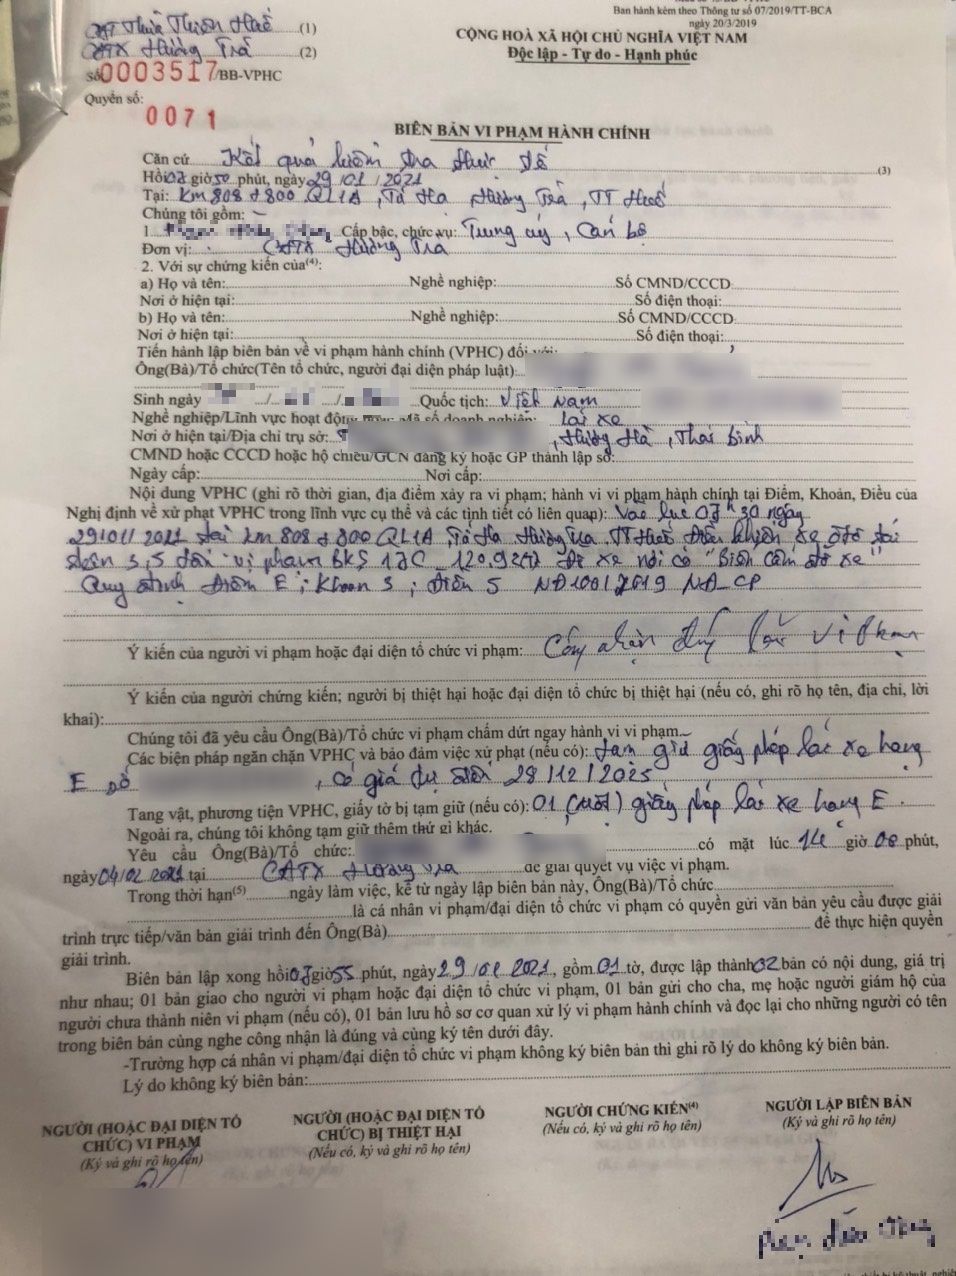 Ban hành kèm theo Thông tư số 07/2019/TT-BCA
ngày 20/3/2019
CỘNG HOÀ XÃ HỘI CHỦ NGHĨA VIỆT NAM
Độc lập - Tự do - Hạnh phúc
CAT Thừa Thiên Huế (1)
CATX Hương Trà (2)
Số 0003517/BB-VPHC
Quyển số:
0071
BIÊN BẢN VI PHẠM HÀNH CHÍNH
Căn cứ Kết quả kiểm tra thực tế (3)
Hồi 07 giờ 50 phút, ngày 29/01/2021
Tại: Km 808+800 QL1A, Tứ Hạ, Hương Trà, TT Huế
Chúng tôi gồm:
1. Cấp bậc, chức vụ: Trung úy, Cán bộ
Đơn vị: CATX Hương Trà
2. Với sự chứng kiến của(4):
a) Họ và tên: Nghề nghiệp: Số CMND/CCCD:
Nơi ở hiện tại: Số điện thoại:
b) Họ và tên: Nghề nghiệp: Số CMND/CCCD:
Nơi ở hiện tại: Số điện thoại:
Tiến hành lập biên bản về vi phạm hành chính (VPHC) đối với:
Ông(Bà)/Tổ chức(Tên tổ chức, người đại diện pháp luật):
Sinh ngày / / Quốc tịch: Việt Nam
Nghề nghiệp/Lĩnh vực hoạt động; mã số doanh nghiệp: lái xe
Nơi ở hiện tại/Địa chỉ trụ sở: , Hưng Hà, Thái Bình
CMND hoặc CCCD hoặc hộ chiếu/GCN đăng ký hoặc GP thành lập số:
Ngày cấp: Nơi cấp:
Nội dung VPHC (ghi rõ thời gian, địa điểm xảy ra vi phạm; hành vi vi phạm hành chính tại Điểm, Khoản, Điều của
Nghị định về xử phạt VPHC trong lĩnh vực cụ thể và các tình tiết có liên quan): Vào lúc 07h30 ngày
29/01/2021 tại Km 808+800 QL1A Tứ Hạ Hương Trà TT Huế Điều khiển xe ôtô tải
trên 3,5 tấn vi phạm BKS 17C_120.92 Đỗ xe nơi có "Biển cấm đỗ xe"
Quy định Điểm E; Khoản 3; Điều 5 NĐ100/2019 NĐ_CP
Ý kiến của người vi phạm hoặc đại diện tổ chức vi phạm: Công nhận đúng lỗi vi phạm
Ý kiến của người chứng kiến; người bị thiệt hại hoặc đại diện tổ chức bị thiệt hại (nếu có, ghi rõ họ tên, địa chỉ, lời
khai):
Chúng tôi đã yêu cầu Ông(Bà)/Tổ chức vi phạm chấm dứt ngay hành vi vi phạm.
Các biện pháp ngăn chặn VPHC và bảo đảm việc xử phạt (nếu có): tạm giữ giấy phép lái xe hạng
E số , có giá trị đến 28/12/2025
Tang vật, phương tiện VPHC, giấy tờ bị tạm giữ (nếu có): 01 (một) giấy phép lái xe hạng E.
Ngoài ra, chúng tôi không tạm giữ thêm thứ gì khác.
Yêu cầu Ông(Bà)/Tổ chức: có mặt lúc 14 giờ 00 phút,
ngày 04/02/2021 tại CATX Hương Trà để giải quyết vụ việc vi phạm.
Trong thời hạn(5) ngày làm việc, kể từ ngày lập biên bản này, Ông(Bà)/Tổ chức
là cá nhân vi phạm/đại diện tổ chức vi phạm có quyền gửi văn bản yêu cầu được giải
trình trực tiếp/văn bản giải trình đến Ông(Bà) để thực hiện quyền
giải trình.
Biên bản lập xong hồi 07 giờ 55 phút, ngày 29/01/2021, gồm 01 tờ, được lập thành 02 bản có nội dung, giá trị
như nhau; 01 bản giao cho người vi phạm hoặc đại diện tổ chức vi phạm, 01 bản gửi cho cha, mẹ hoặc người giám hộ của
người chưa thành niên vi phạm (nếu có), 01 bản lưu hồ sơ cơ quan xử lý vi phạm hành chính và đọc lại cho những người có tên
trong biên bản cùng nghe công nhận là đúng và cùng ký tên dưới đây.
-Trường hợp cá nhân vi phạm/đại diện tổ chức vi phạm không ký biên bản thì ghi rõ lý do không ký biên bản.
Lý do không ký biên bản:
NGƯỜI (HOẶC ĐẠI DIỆN TỔ CHỨC) VI PHẠM
(Ký và ghi rõ họ tên)
NGƯỜI (HOẶC ĐẠI DIỆN TỔ CHỨC) BỊ THIỆT HẠI
(Nếu có, ký và ghi rõ họ tên)
NGƯỜI CHỨNG KIẾN(4)
(Nếu có, ký và ghi rõ họ tên)
NGƯỜI LẬP BIÊN BẢN
(Ký và ghi rõ họ tên)